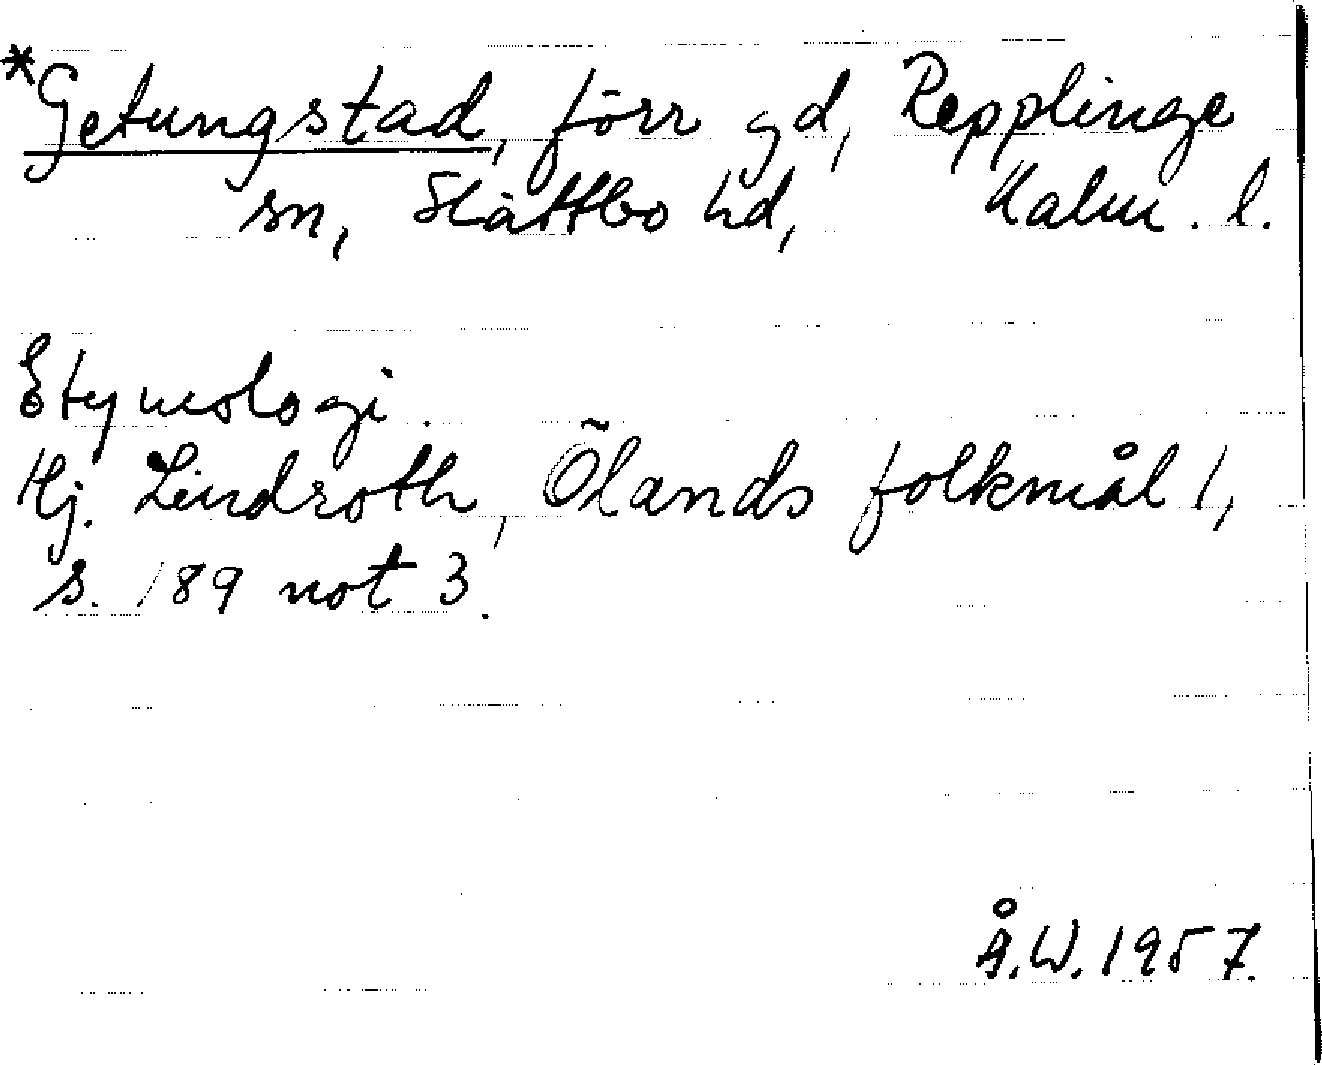 *Getungstad, förr gd, Repplinge
sn, Slättbo hd, Kalm. l.
Etymologi.
Hj. Lindroth, Ölands folkmål 1,
s. 189 not 3.
Å.W. 1957.